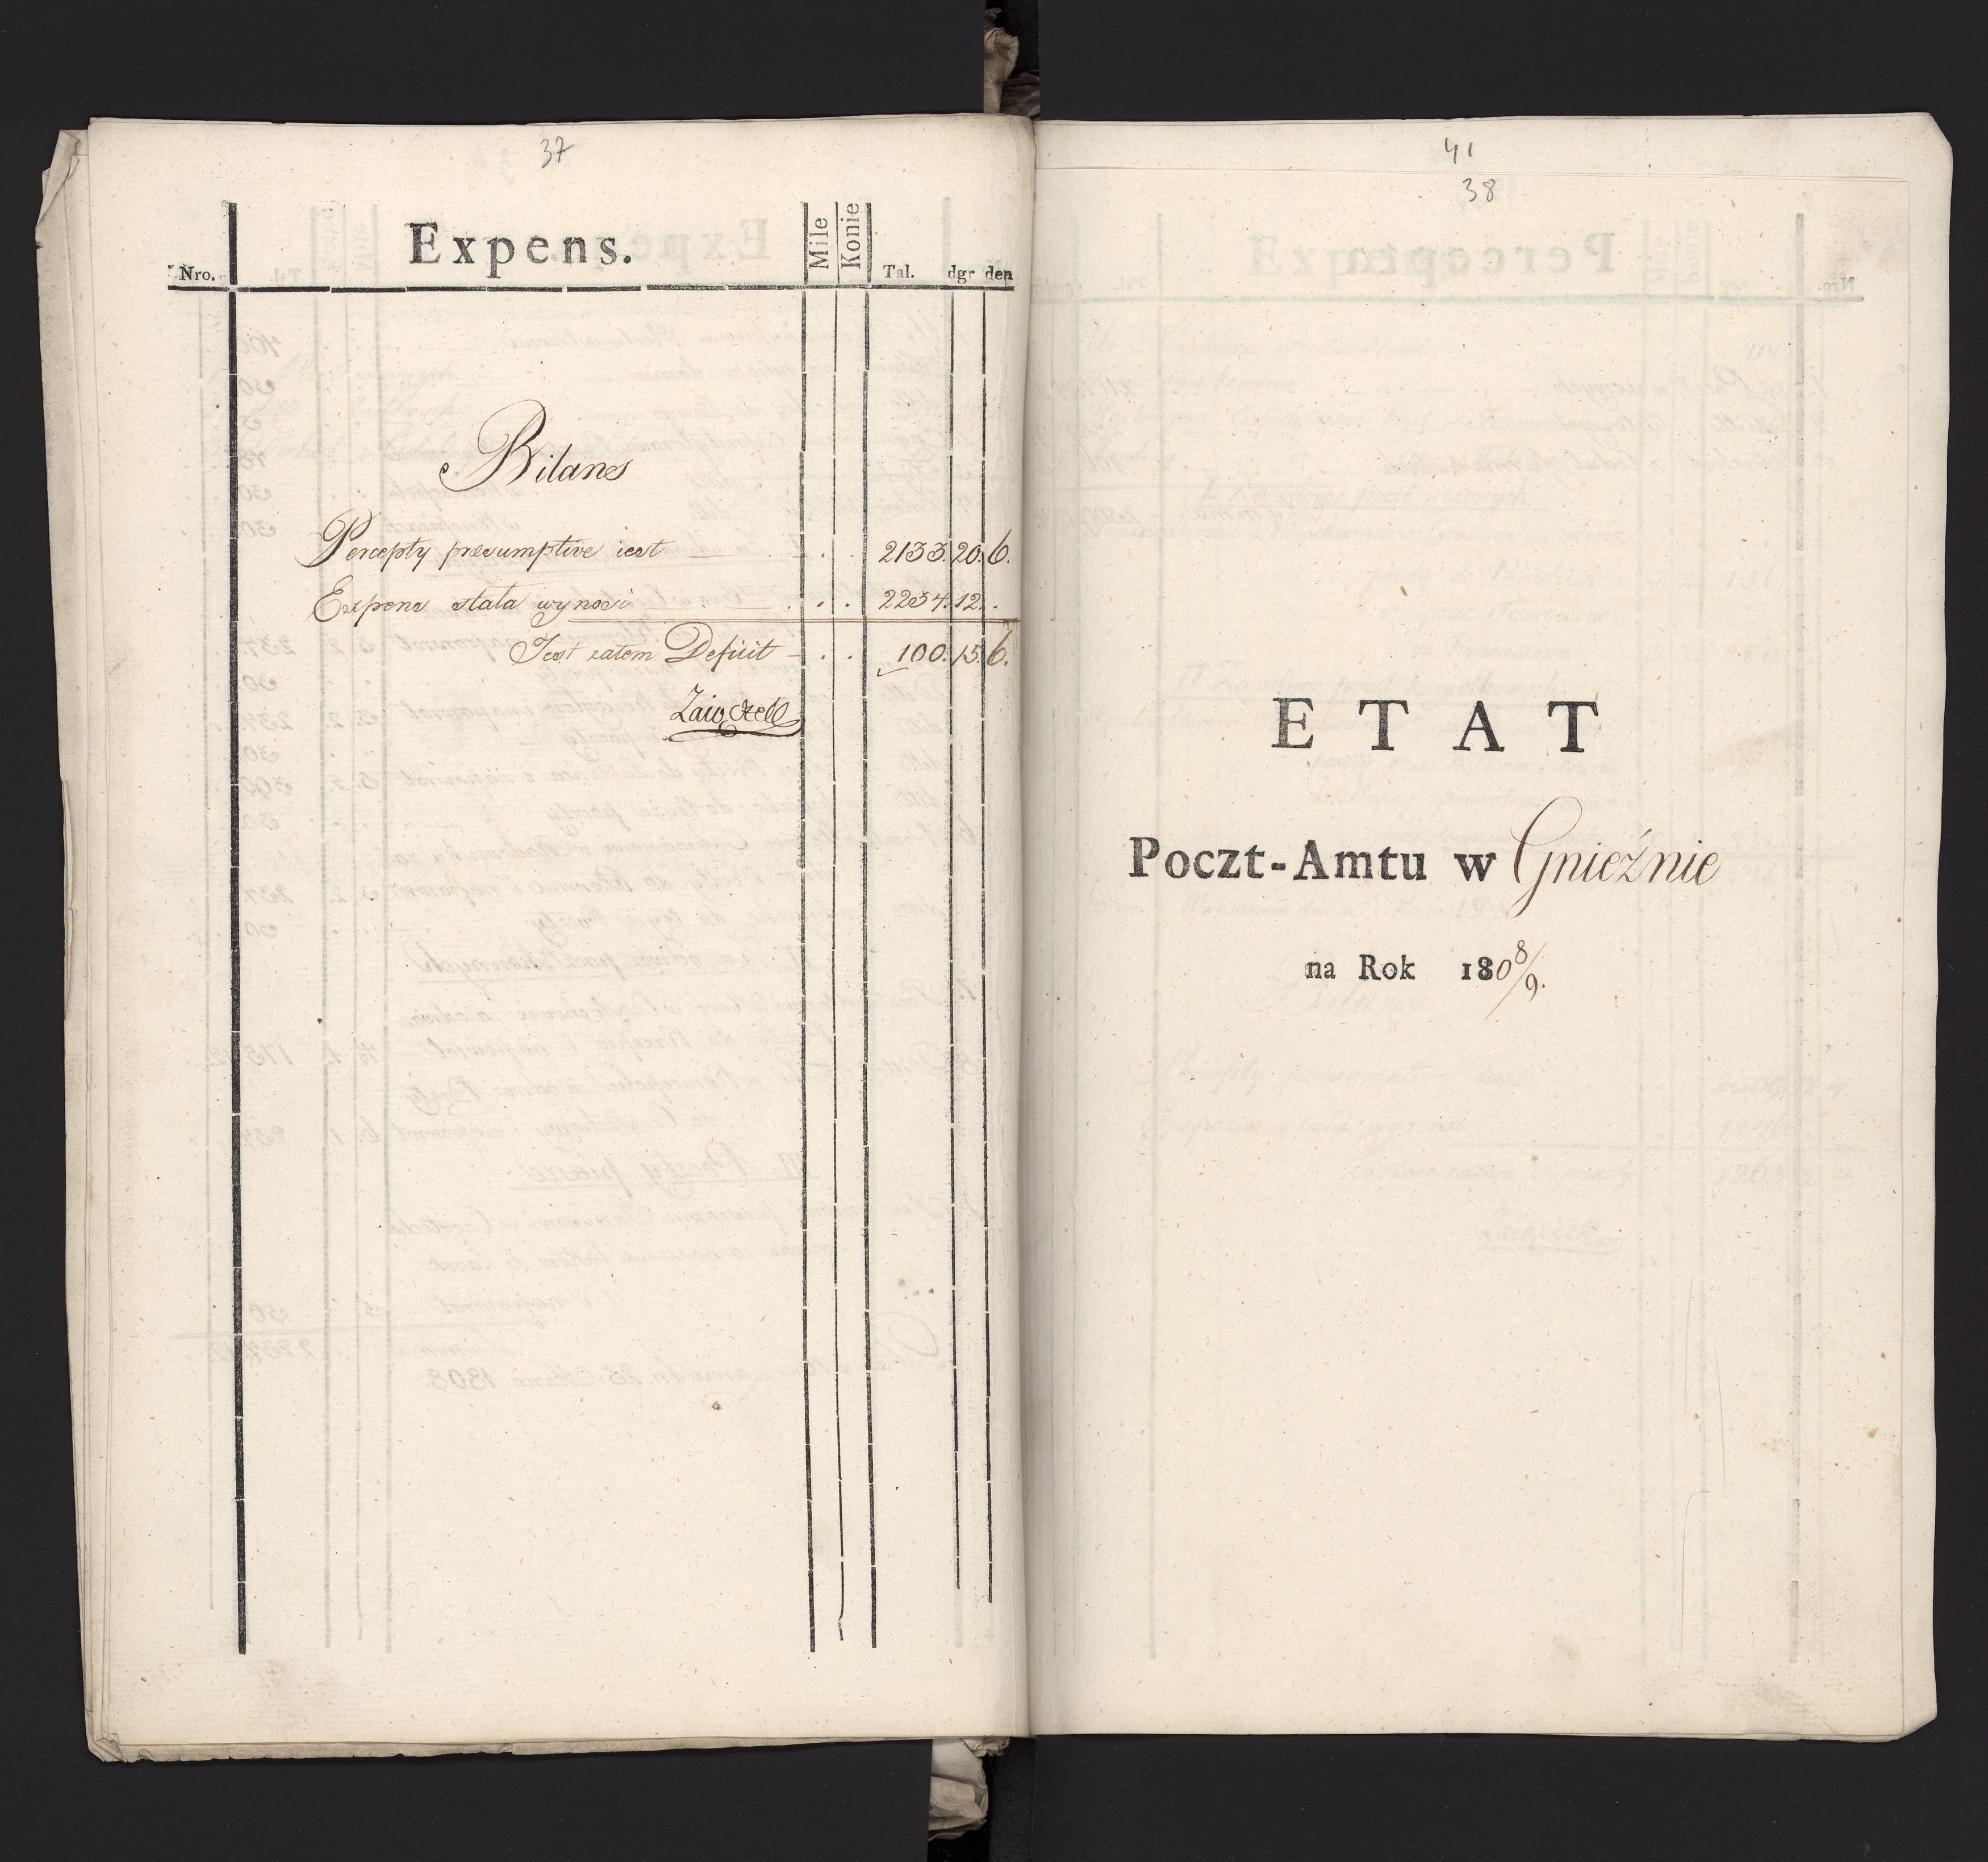 37
Expens.
Nro. Mile Konie Tal. dgr den
Bilans
Percepty præsumptive iest 2133. 20. 6.
Expens stała wynosi 2234. 12.
Jest zatem Deficit 100. 15. 6.
Zaiączek
41
38
ETAT
Poczt-Amtu w Gnieźnie
na Rok 1808/9.